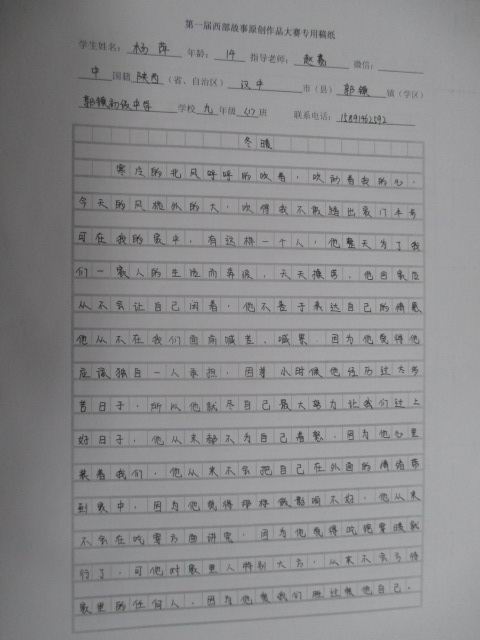 第一届西部故事原创作品大赛专用稿纸
学生姓名：杨萍 年龄：14 指导老师：赵 微信：
中 国籍 陕西（省、自治区）汉中 市（县）郭镇 镇（学区）
郭镇初级中学 学校 九 年级 (1)班 联系电话：
冬暖
寒冷的北风呼呼的吹着，吹动着我的心。
今天的风格外的大，吹得我不敢踏出家门半步
可在我的家中，有这样一个人，他整天为了我
们一家人的生活而奔波，天天操劳，他回家应
从不会让自己闲着，他不善于表达自己的情感
他从不在我们面前喊苦、喊累，因为他觉得他
应该独自一人承担，因着小时候他经历过太多
苦日子，所以他就尽自己最大努力让我们过上
好日子，他从来都不为自己着想，因为他心里
装着我们，他从来不会把自己在外面的情绪带
到家中，因为他觉得那样做影响不好，他从来
不会在吃穿方面讲究，因为他觉得吃饱穿暖就
行了，可他对家里人特别大方，从来不会亏待
家里的任何人，因为他爱我们胜过爱他自己。